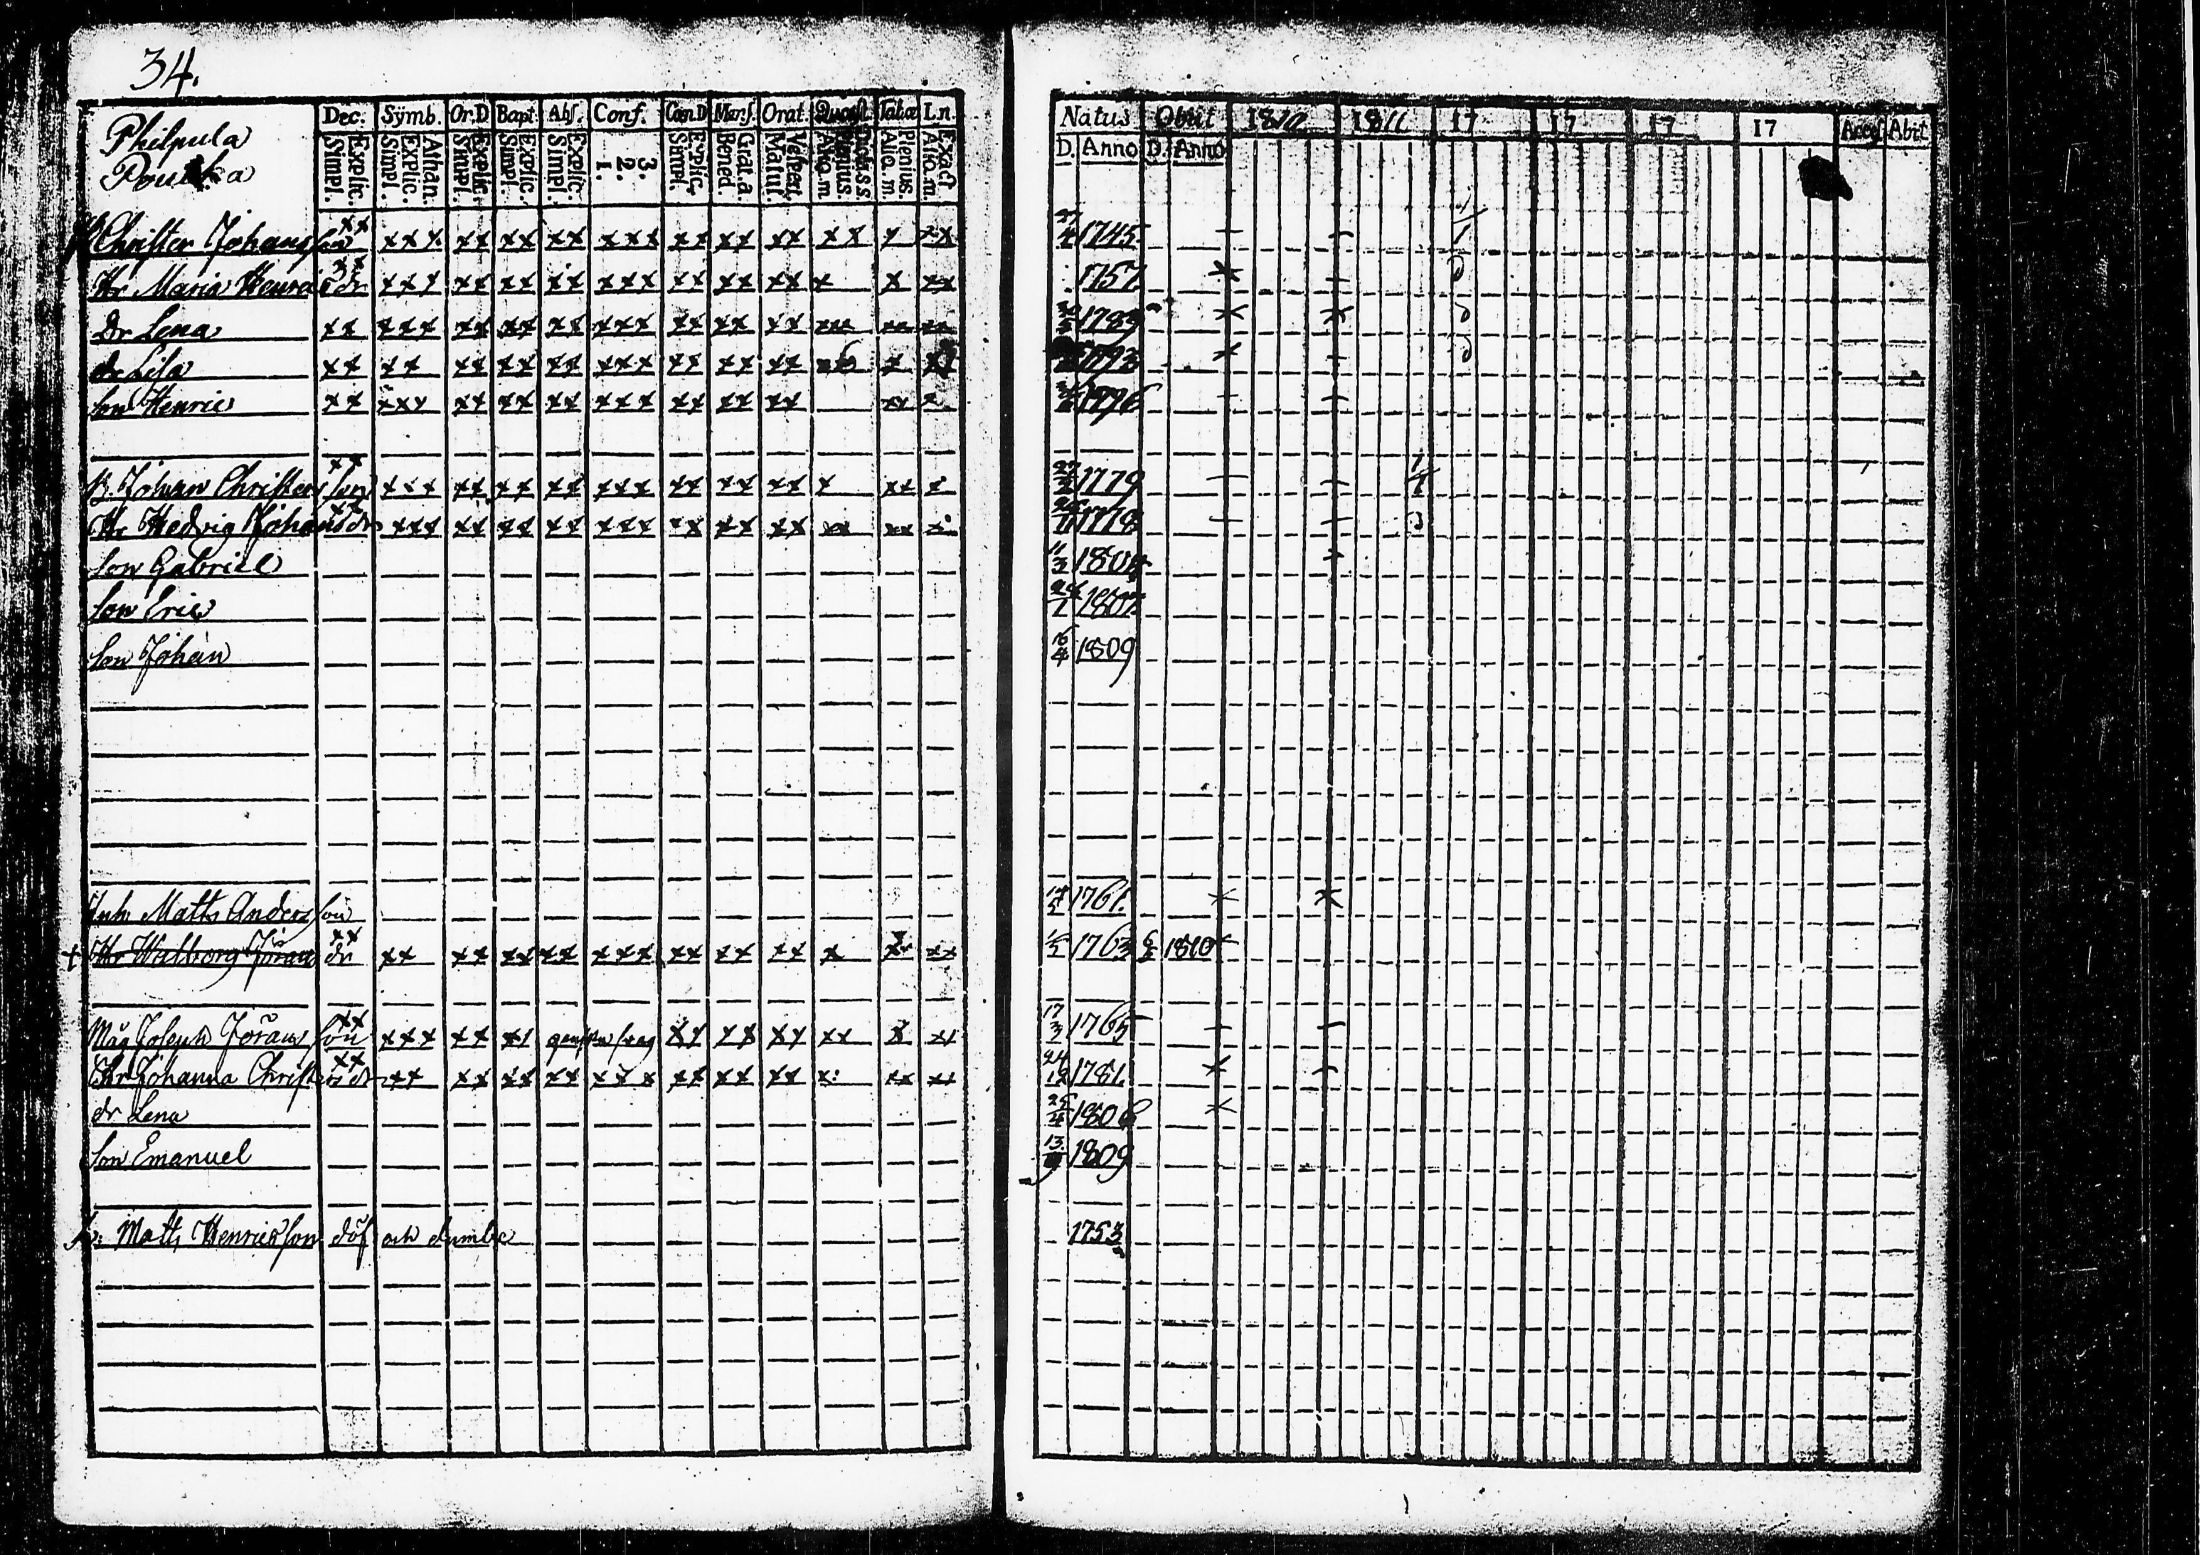 34.
Philpula
Dec. Symb. Or.D Bapt. Abs. Conf. Cœn.D Mens. Orat. Quæst. Tabæ Ln.
Explic. Simpl. Athan. Explic. Simpl. Explic. Simpl. Explic. Simpl. Explic. Simpl. 3. 2. 1. Explic. Simpl. Grat.a. Bened. Vespert. Matut. Plenius. Aliq. m. Plenius. Aliq. m. Exact Aliq. m.
Natus Obiit 1810 1811 17 17 17 17 Access Abit
D. Anno D. Anno
Christer Johansson xx xxx xx xx xx xxx xx xx xx xx x xx 27/4 1745
Hr Maria Henrics dr xxx xx xx xx xxx xx xx xx x x xx 1757
dr Lena xx xxx xx xx xx xxx xx xx xx xxx xx xx 1789
dr Lisa xx xx xx xx xx xxx xx xx xx x 1793
son Henric xx xxx xx xx xx xxx xx xx xx xx x 1796
B. Johan Christersson xx xxx xx xx xx xxx xx xx xx x xx x 1779
Hr Hedvig Johans dr xx xxx xx xx xx xxx xx xx xx xx xx x 1778
son Gabriel 11/3 1804
son Eric 1807
son Johan 16/4 1809
Inh. Matts Andersson 1761
+ Hr Walborg Jöran dr xx xx xx xx xx xxx xx xx xx x x xx 1763 1810
Måg Joseph Jöransson xx xxx xx xx xx xx xx xx x xx 17/3 1765
Hr Johanna Christers dr xx xx xx xx xx xxx xx xx xx x xx xx 24/12 1781
dr Lena 25/4 1806
son Emanuel 13 1809
Matts Henricsson döf och dumbe 1753